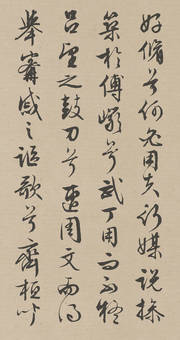 好脩兮何必用夫行媒說操
築於傅巖兮武丁用而不疑
呂望之鼓刀兮遭周文而得
舉甯戚之謳歌兮齊桓聞